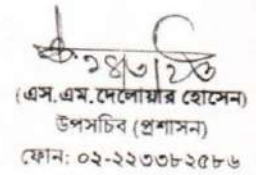 (এস.এম.দেলোয়ার হোসেন)
উপসচিব (প্রশাসন)
ফোন: ০২-২২৩৩৮২৫৮৬